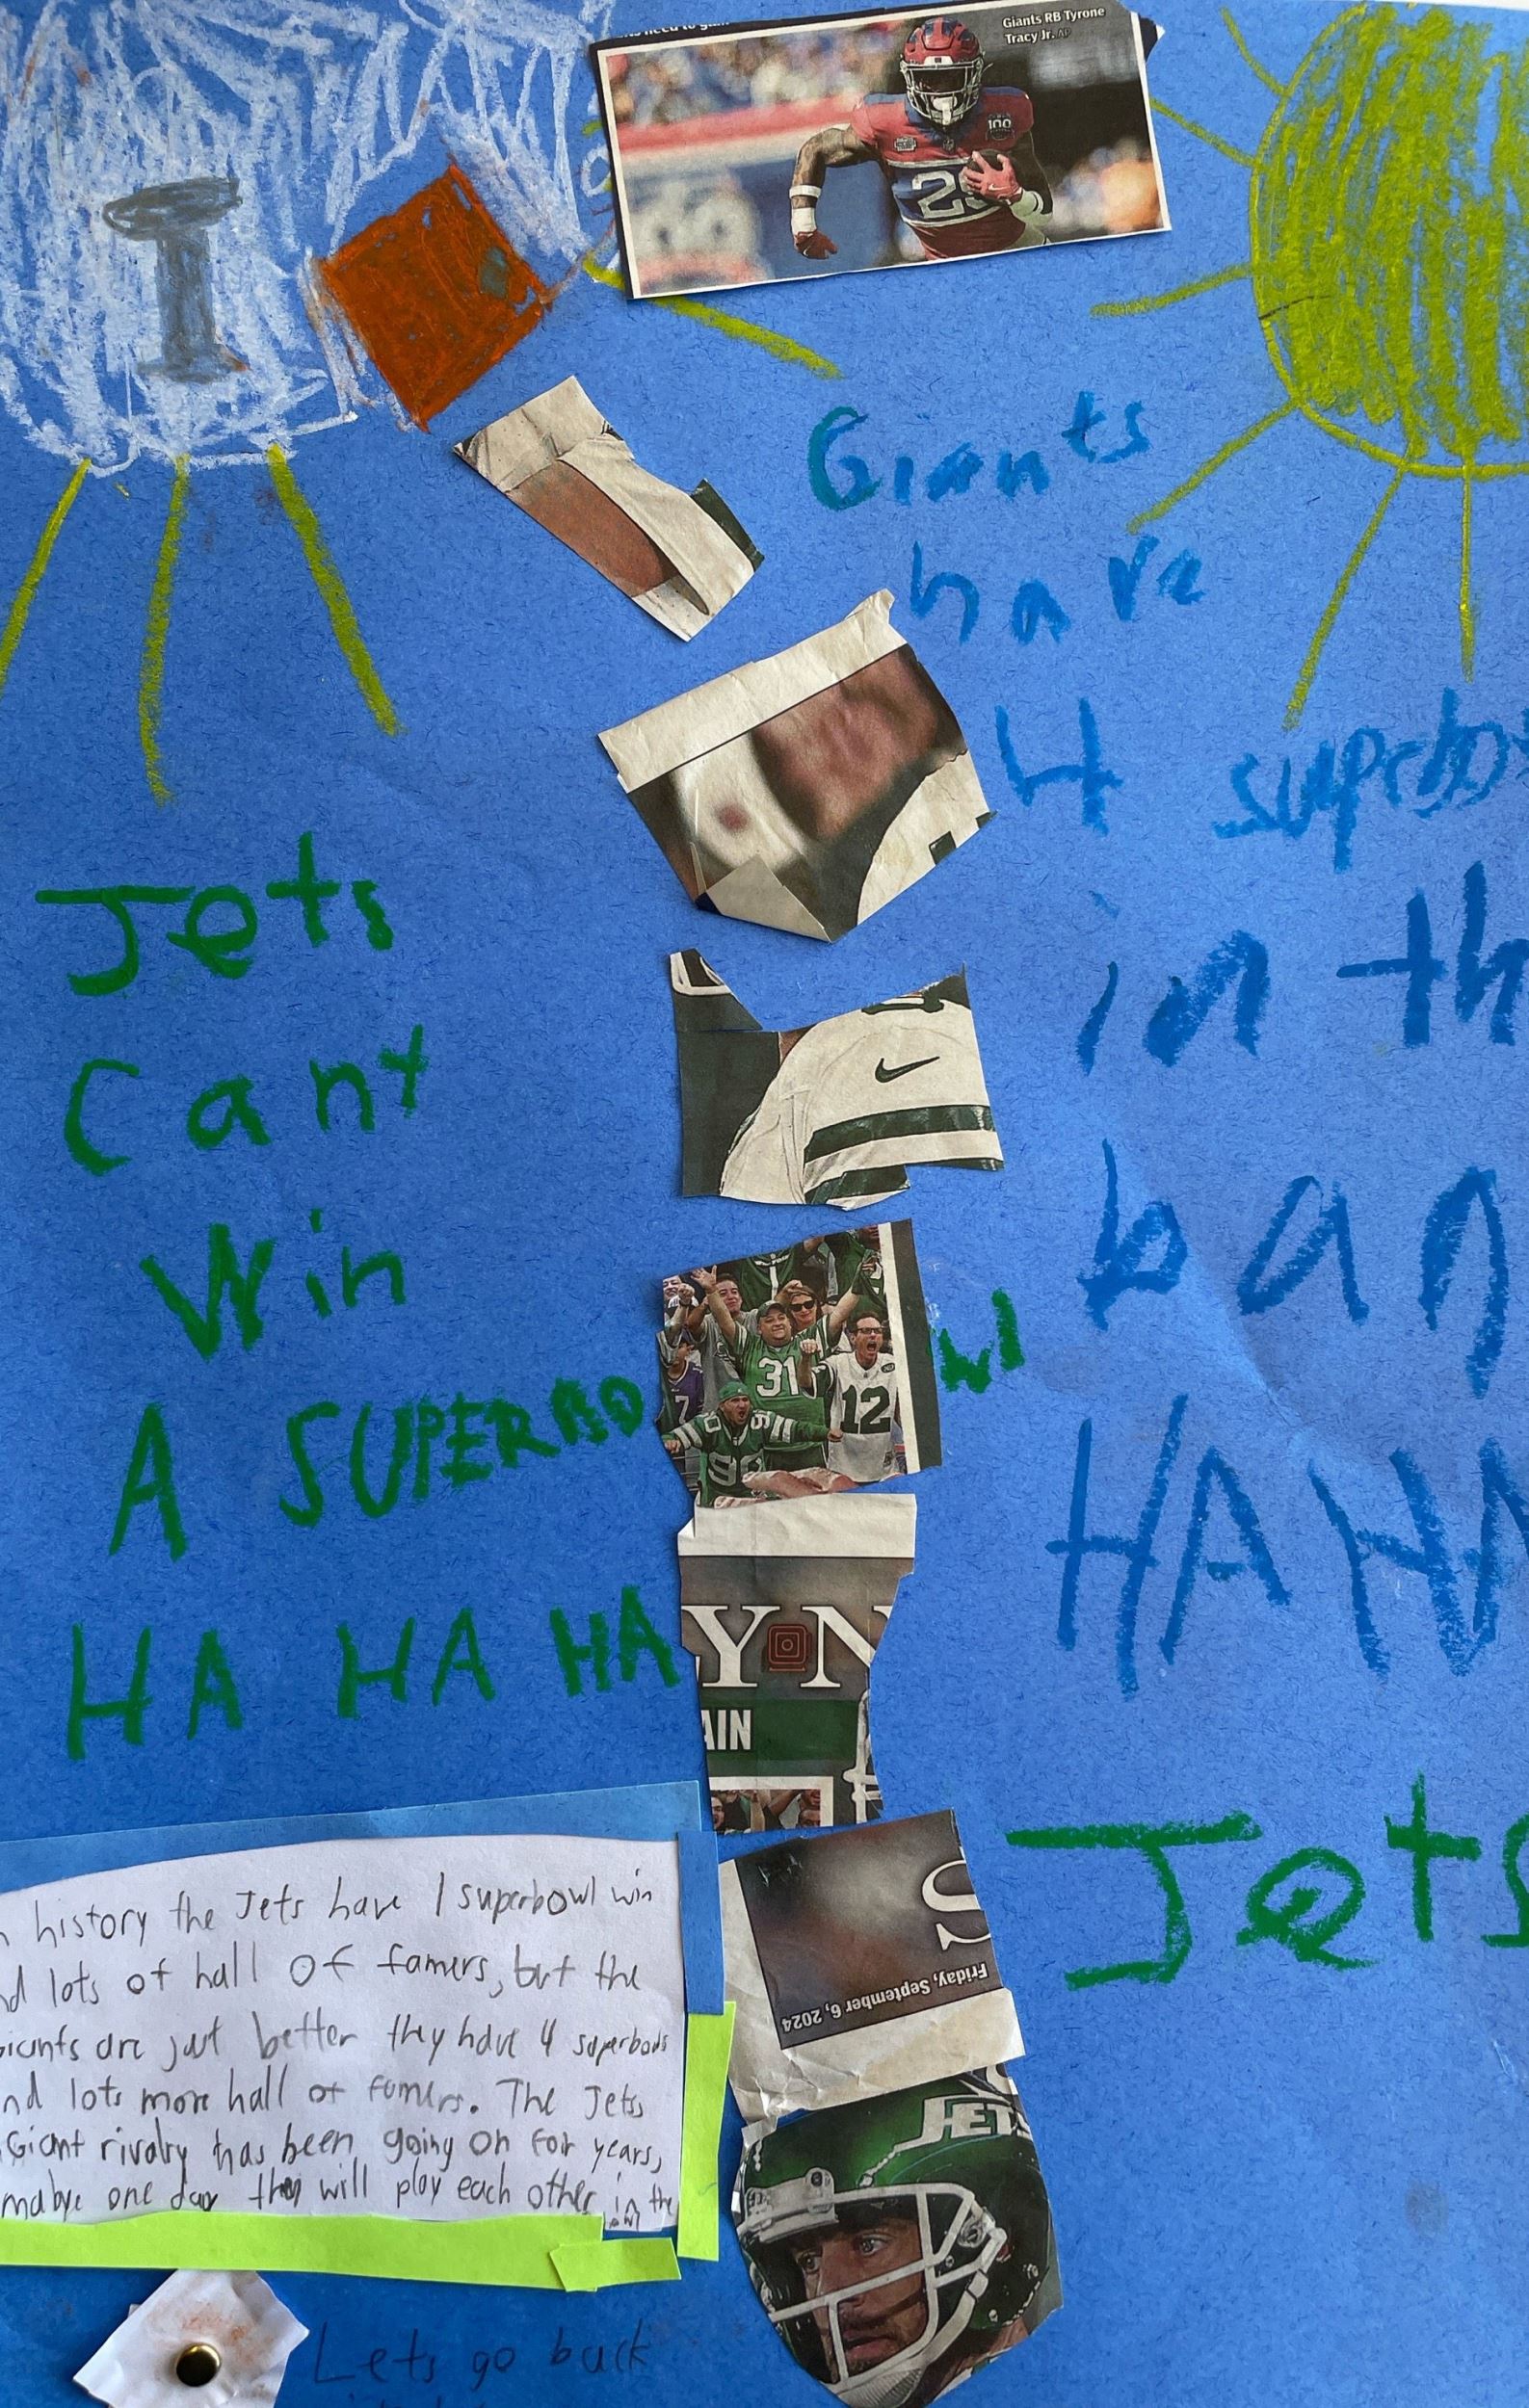 Giants RB Tyrone
Tracy Jr. AP
100
I
Giants
have
4 superbo
in th
ban
HAHA
Jets
Cant
Win
A SUPERBOWl
HA HA HA
31
12
7
90
YN
AIN
S
Friday, September 6, 2024
Jets
JETS
history the Jets have 1 superbowl win
nd lots of hall of famers, but the
iants are just better they have 4 superbowls
nd lots more hall of famers. The Jets
Giant rivalry has been going on for years,
mabye one day they will play each other in the
Lets go back